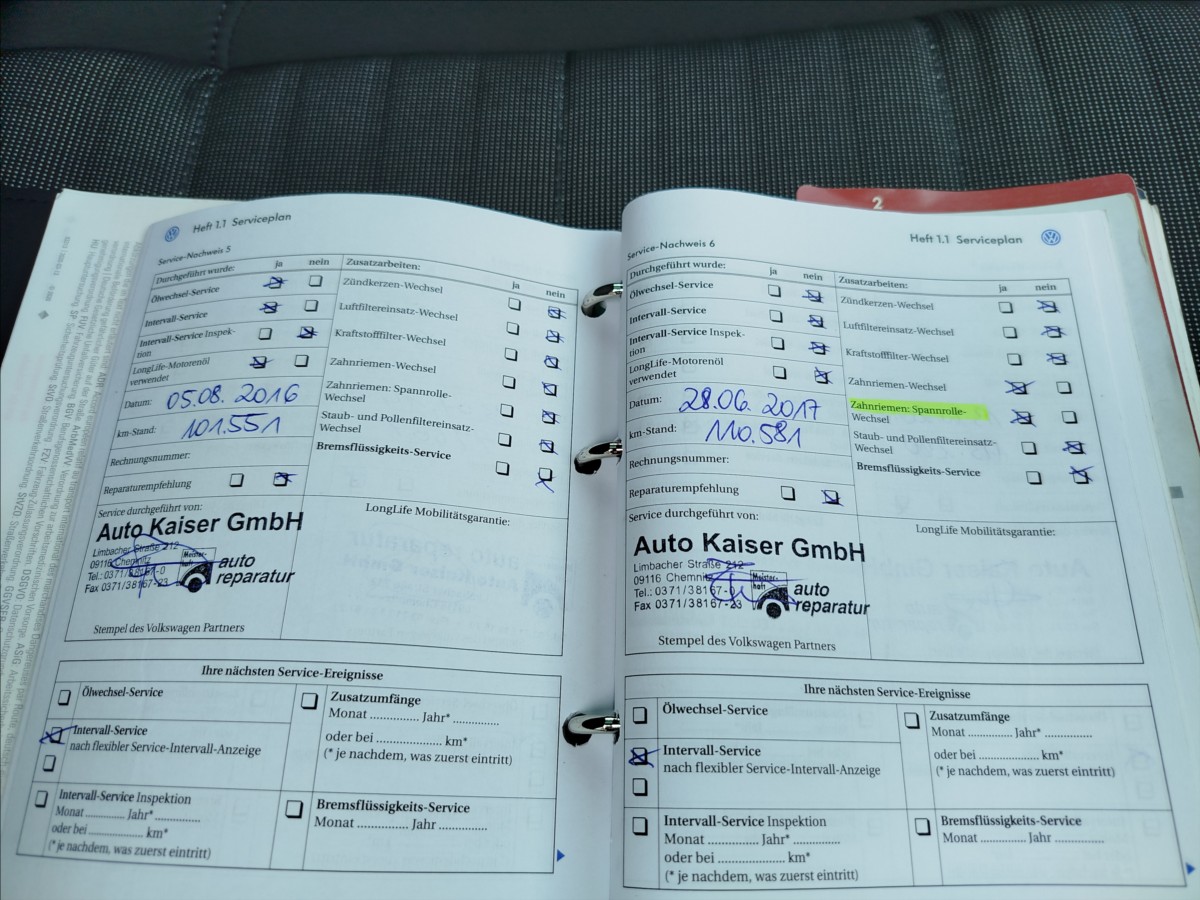 2
Heft 1.1 Serviceplan
Service-Nachweis 5
Durchgeführt wurde: ja nein
Ölwechsel-Service
Intervall-Service
Intervall-Service Inspek-
tion
LongLife-Motorenöl
verwendet
Datum: 05.08. 2016
km-Stand: 101.551
Rechnungsnummer:
Reparaturempfehlung
Service durchgeführt von:
Auto Kaiser GmbH
Limbacher Straße 212
09116 Chemnitz
Tel.: 0371/38167-0
Fax 0371/38167-23
Meister-
haft
auto
reparatur
Stempel des Volkswagen Partners
Zusatzarbeiten: ja nein
Zündkerzen-Wechsel
Luftfiltereinsatz-Wechsel
Kraftstofffilter-Wechsel
Zahnriemen-Wechsel
Zahnriemen: Spannrolle-
Wechsel
Staub- und Pollenfiltereinsatz-
Wechsel
Bremsflüssigkeits-Service
LongLife Mobilitätsgarantie:
Ihre nächsten Service-Ereignisse
Ölwechsel-Service
Intervall-Service
nach flexibler Service-Intervall-Anzeige
Intervall-Service Inspektion
Monat .............. Jahr* ..............
oder bei ...................... km*
(* je nachdem, was zuerst eintritt)
Zusatzumfänge
Monat .............. Jahr* ..............
oder bei ...................... km*
(* je nachdem, was zuerst eintritt)
Bremsflüssigkeits-Service
Monat .............. Jahr ..............
Heft 1.1 Serviceplan
Service-Nachweis 6
Durchgeführt wurde: ja nein
Ölwechsel-Service
Intervall-Service
Intervall-Service Inspek-
tion
LongLife-Motorenöl
verwendet
Datum: 28.06. 2017
km-Stand: 110.581
Rechnungsnummer:
Reparaturempfehlung
Service durchgeführt von:
Auto Kaiser GmbH
Limbacher Straße 212
09116 Chemnitz
Tel.: 0371/38167-0
Fax 0371/38167-23
Meister-
haft
auto
reparatur
Stempel des Volkswagen Partners
Zusatzarbeiten: ja nein
Zündkerzen-Wechsel
Luftfiltereinsatz-Wechsel
Kraftstofffilter-Wechsel
Zahnriemen-Wechsel
Zahnriemen: Spannrolle-
Wechsel
Staub- und Pollenfiltereinsatz-
Wechsel
Bremsflüssigkeits-Service
LongLife Mobilitätsgarantie:
Ihre nächsten Service-Ereignisse
Ölwechsel-Service
Intervall-Service
nach flexibler Service-Intervall-Anzeige
Intervall-Service Inspektion
Monat .............. Jahr* ..............
oder bei ...................... km*
(* je nachdem, was zuerst eintritt)
Zusatzumfänge
Monat .............. Jahr* ..............
oder bei ...................... km*
(* je nachdem, was zuerst eintritt)
Bremsflüssigkeits-Service
Monat .............. Jahr ..............